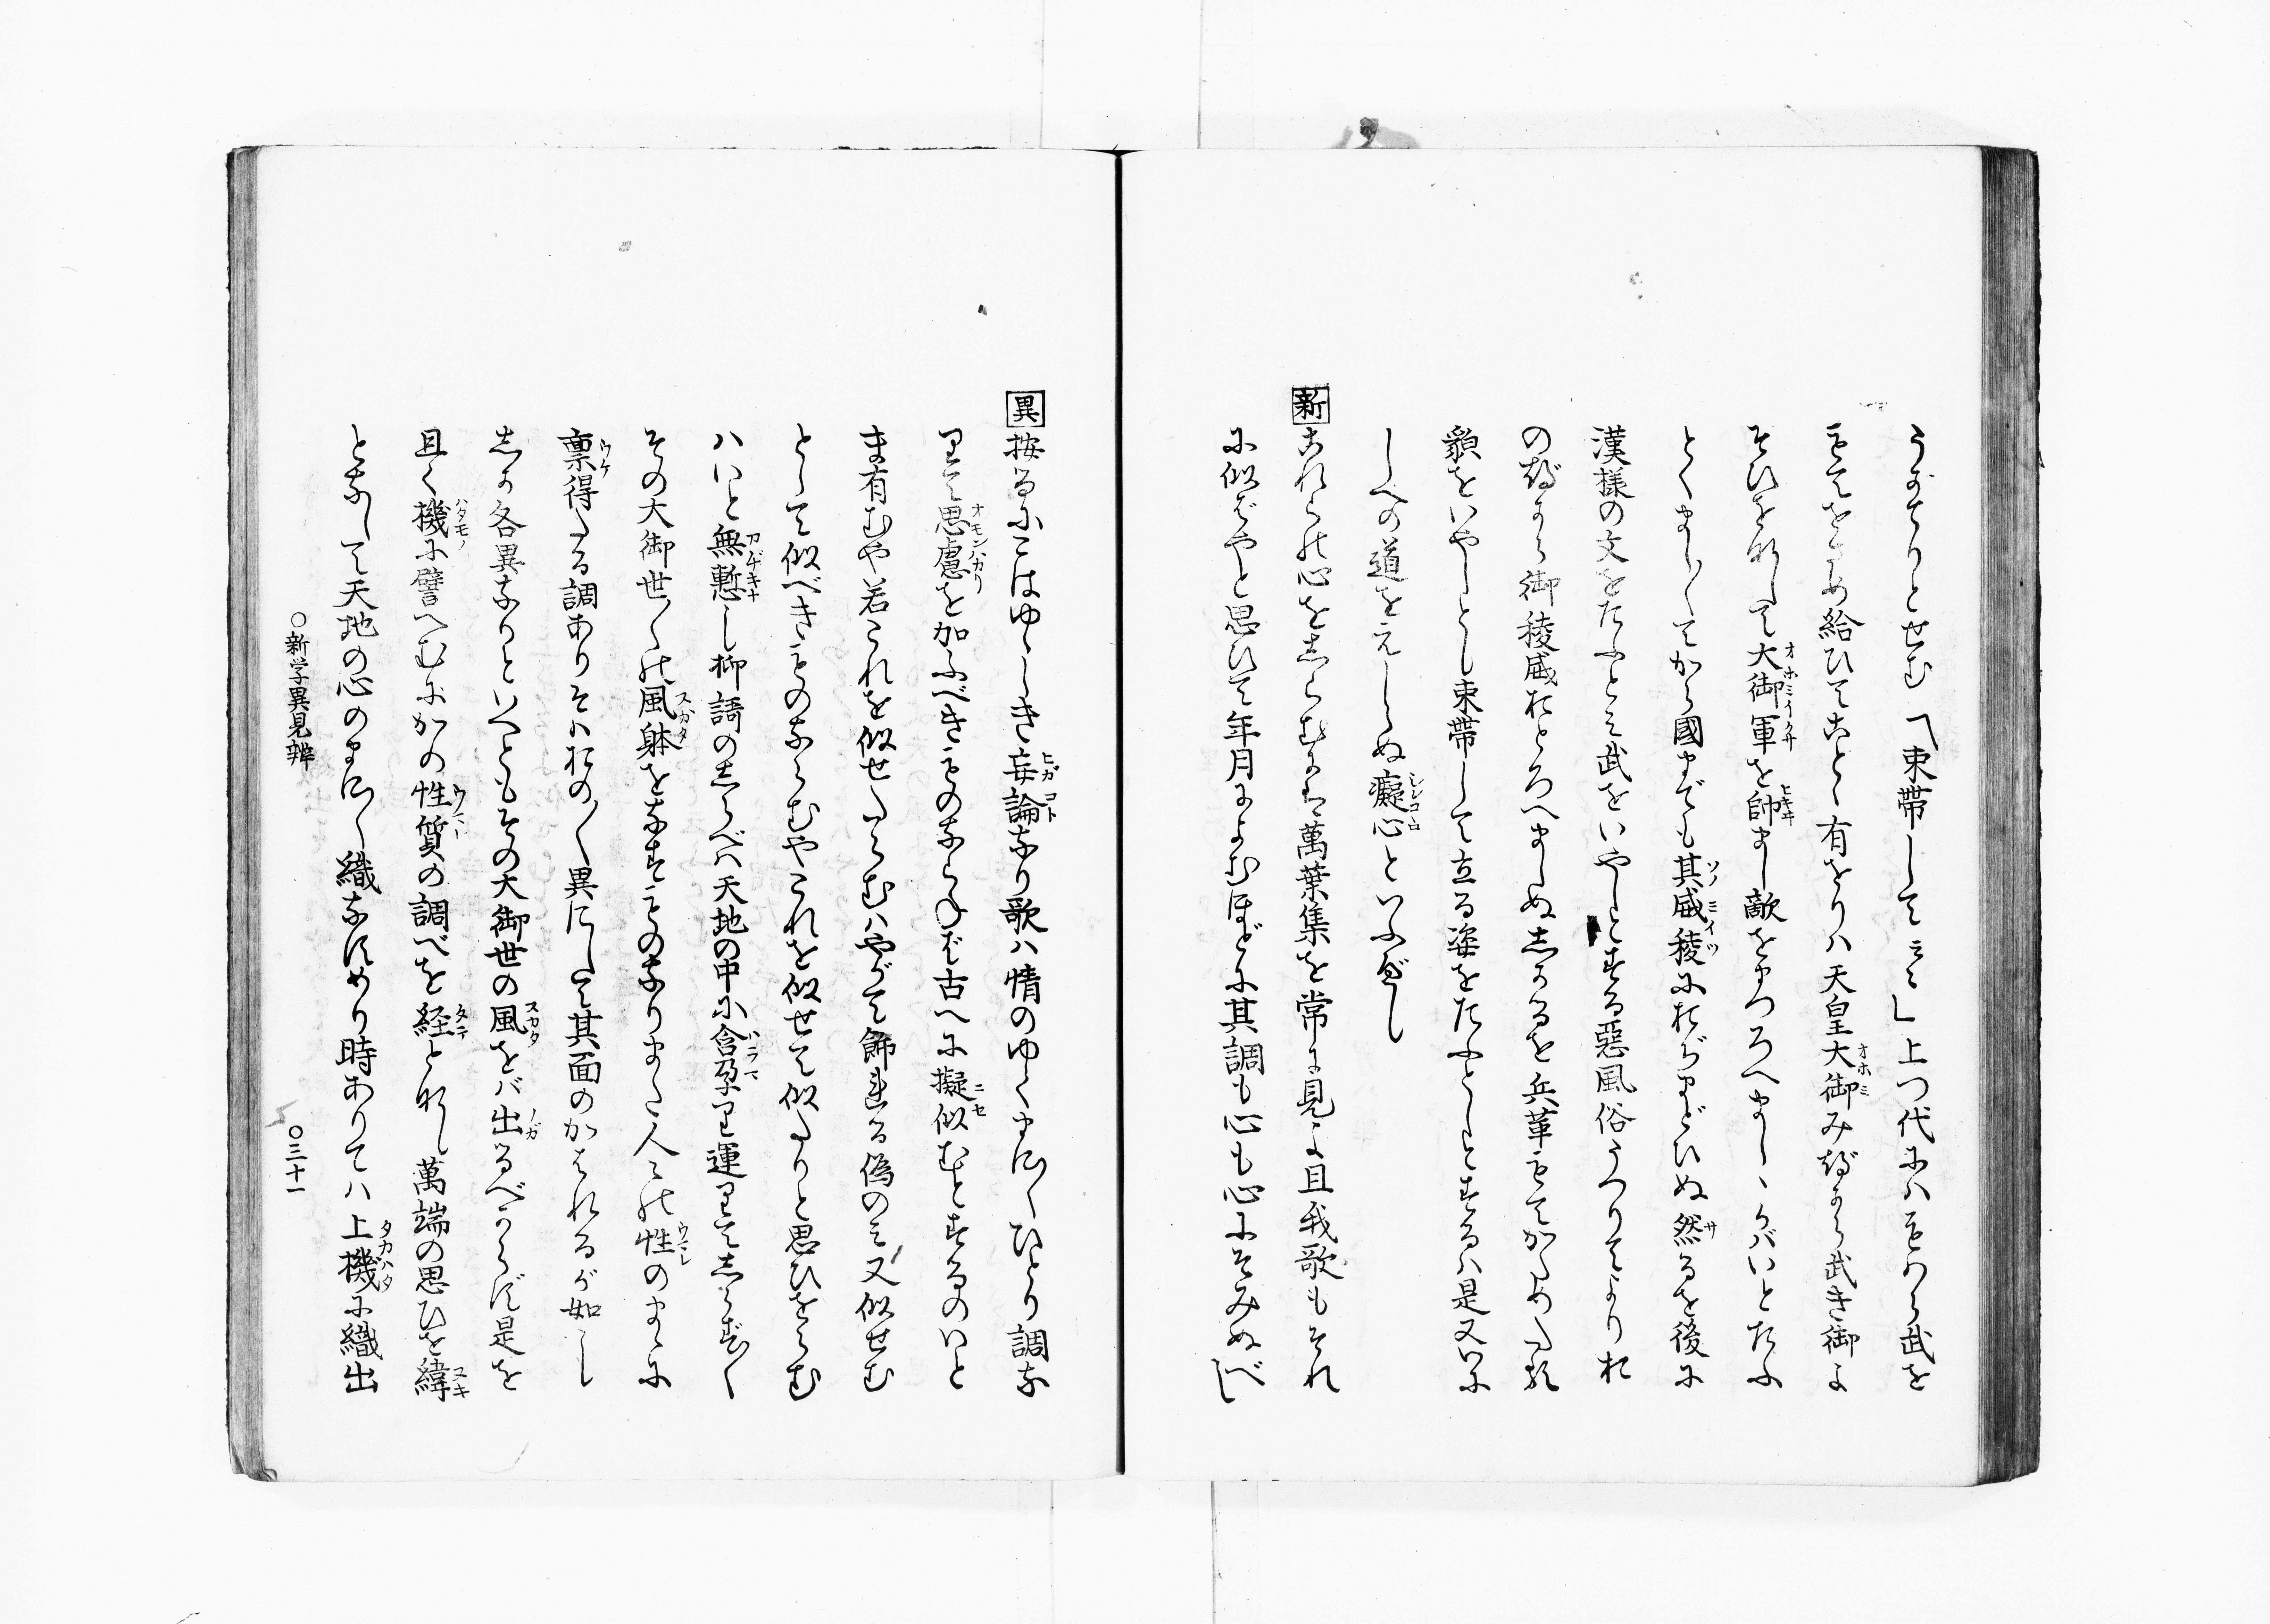 うがてりとせむ「束帯して云々」上つ代にハもハら武を
もてをさめ給ひてことゝ有をりハ天皇大御みづから武き御よ
そひをなして大御軍を帥まし敵をまつろへましゝかバいとたふ
とくましくてから國までも其威稜におぢまどひぬ然るを後に
漢様の文をたふとみ武をいやしとする惡風俗うつりてより お
のづから御稜威おとろへましぬしかるを兵革もてかためたる
貌をいやしとし束帯して立る姿をたふとしとするハ是又いに
しへの道をえしらぬ癡心といふべし
新 これらの心をしらむにハ萬葉集を常に見よ且我歌もそれ
に似ばやと思ひて年月によむほどに其調も心も心にそみぬべし
異 按るにこはゆゝしき妄論なり歌ハ情のゆくまに〱ひとり調な
りて思慮を加ふべきものならねば古へに擬似むとするのいと
ま有むや若これを似せたらむハやがて飾れる偽のミ又似せむ
として似べきものならむやこれを似せて似たりと思ひをらむ
ハいと無慙し抑謌のしらべハ天地の中に含孕り運りてしらず〱
その大御世〱の風躰をなすものなりまた人々の性のまゝに
禀得たる調ありそハおの〱異にして其面のかはれるが如しし
しか各異なりといへどもその大御世の風をバ出るべからず是を
且く機に譬へむにかの性質の調べを経となし萬端の思ひを緯
となして天地の心のまに〱織なすめり時ありてハ上機に織出
○新学異見辨 ○三十一